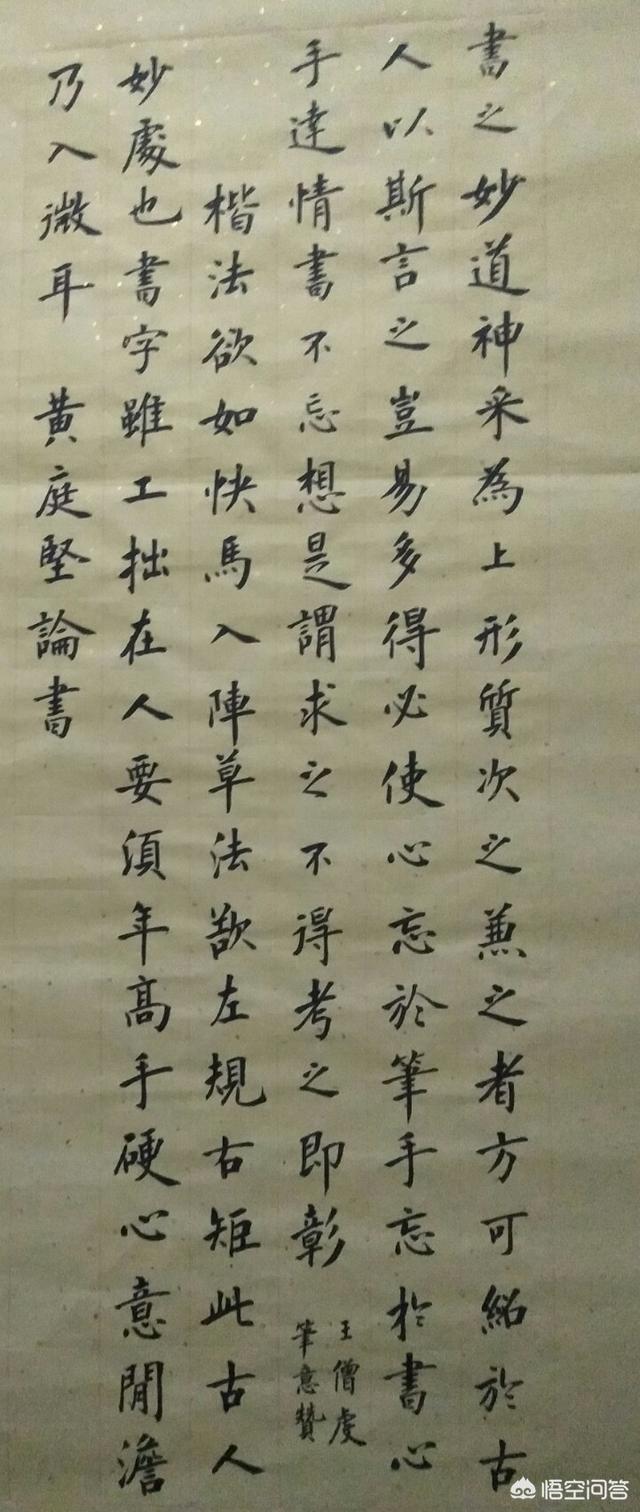 書之妙道神采為上形質次之兼之者方可紹於古
人以斯言之豈易多得必使心忘於筆手忘於書心
手達情書不忘想是謂求之不得考之即彰
王僧虔
筆意贊
楷法欲如快馬入陣草法欲左規右矩此古人
妙處也書字雖工拙在人要須年高手硬心意閒澹
乃入微耳 黃庭堅論書
悟空问答